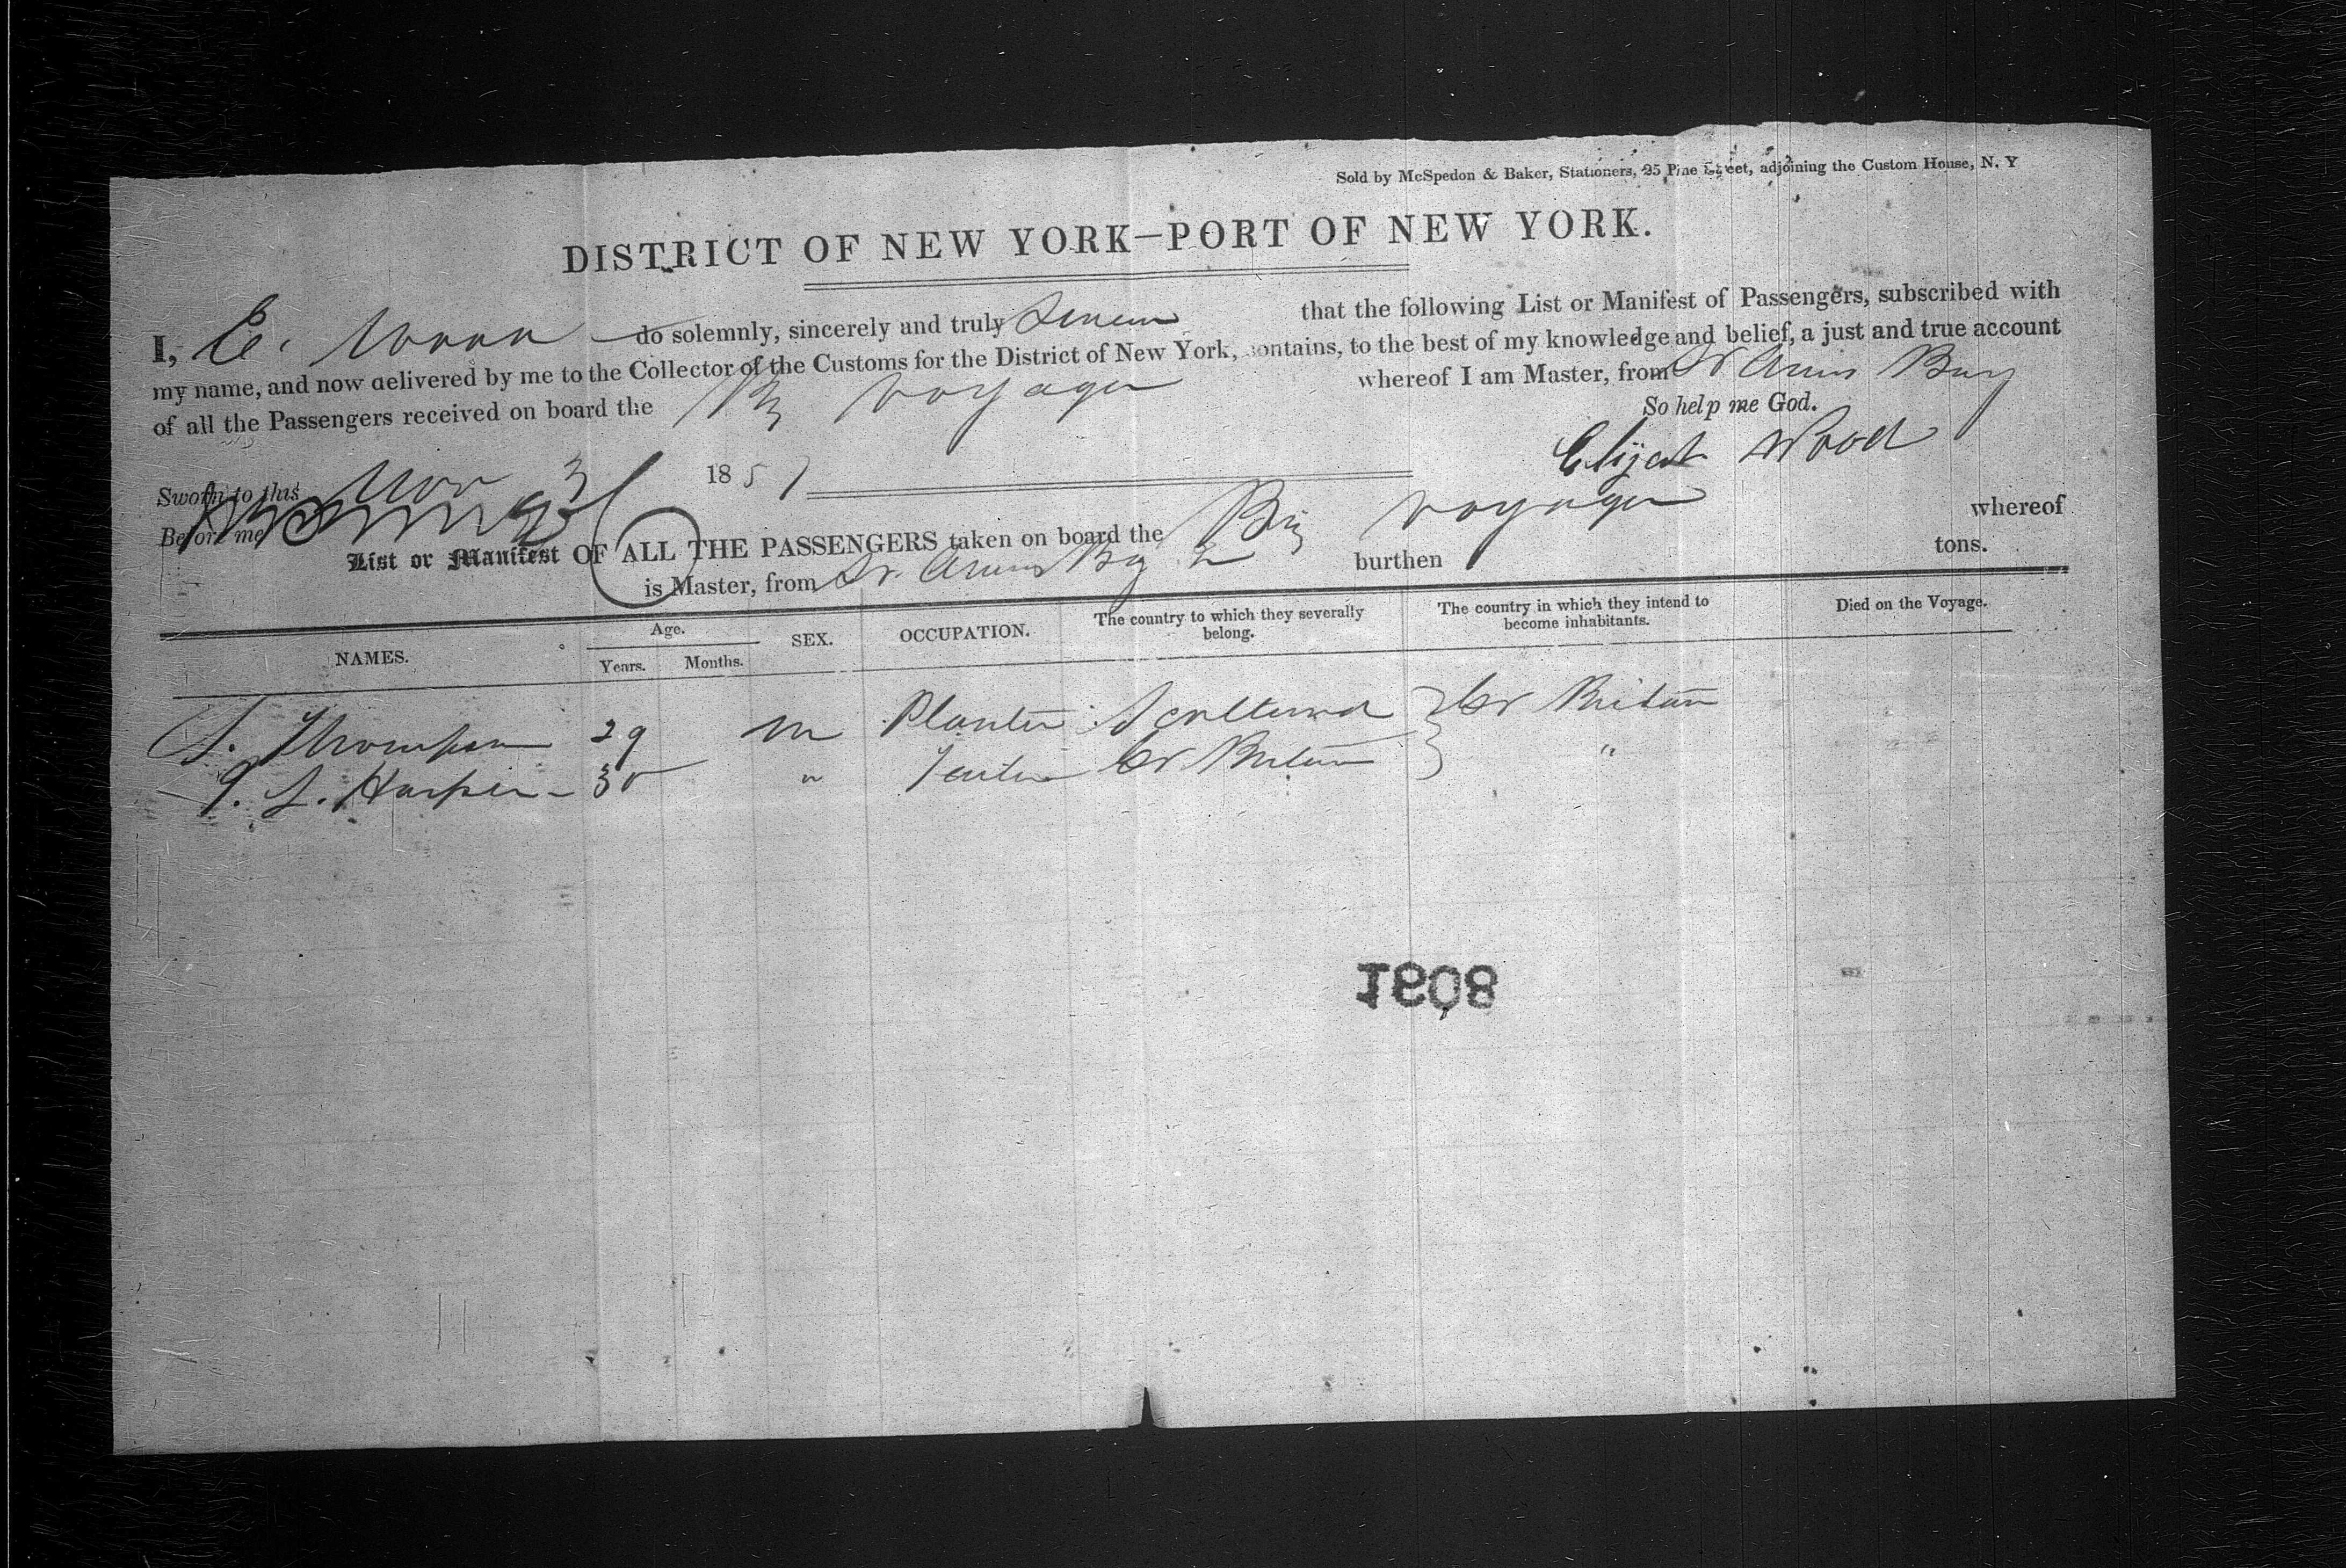 Sold by McSpedon & Baker, Stationers, 25 Pine Street, adjoining the Custom House, N. Y
DISTRICT OF NEW YORK—PORT OF NEW YORK.
I, E. Wood do solemnly, sincerely and truly Swear that the following List or Manifest of Passengers, subscribed with
my name, and now delivered by me to the Collector of the Customs for the District of New York, contains, to the best of my knowledge and belief, a just and true account
of all the Passengers received on board the Br Voyager whereof I am Master, from St Anns Bay
So help me God.
Sworn to this Nov 3 1851
Elijah Wood
Before me
List or Manifest OF ALL THE PASSENGERS taken on board the Brig Voyager whereof
is Master, from St. Anns Bay burthen tons.
NAMES. Age. Years. Months. SEX. OCCUPATION. The country to which they severally belong. The country in which they intend to become inhabitants. Died on the Voyage.
Thompson 29 m Planter Scotland Gr Britain
Harper 30 " Gr Britain "
1808